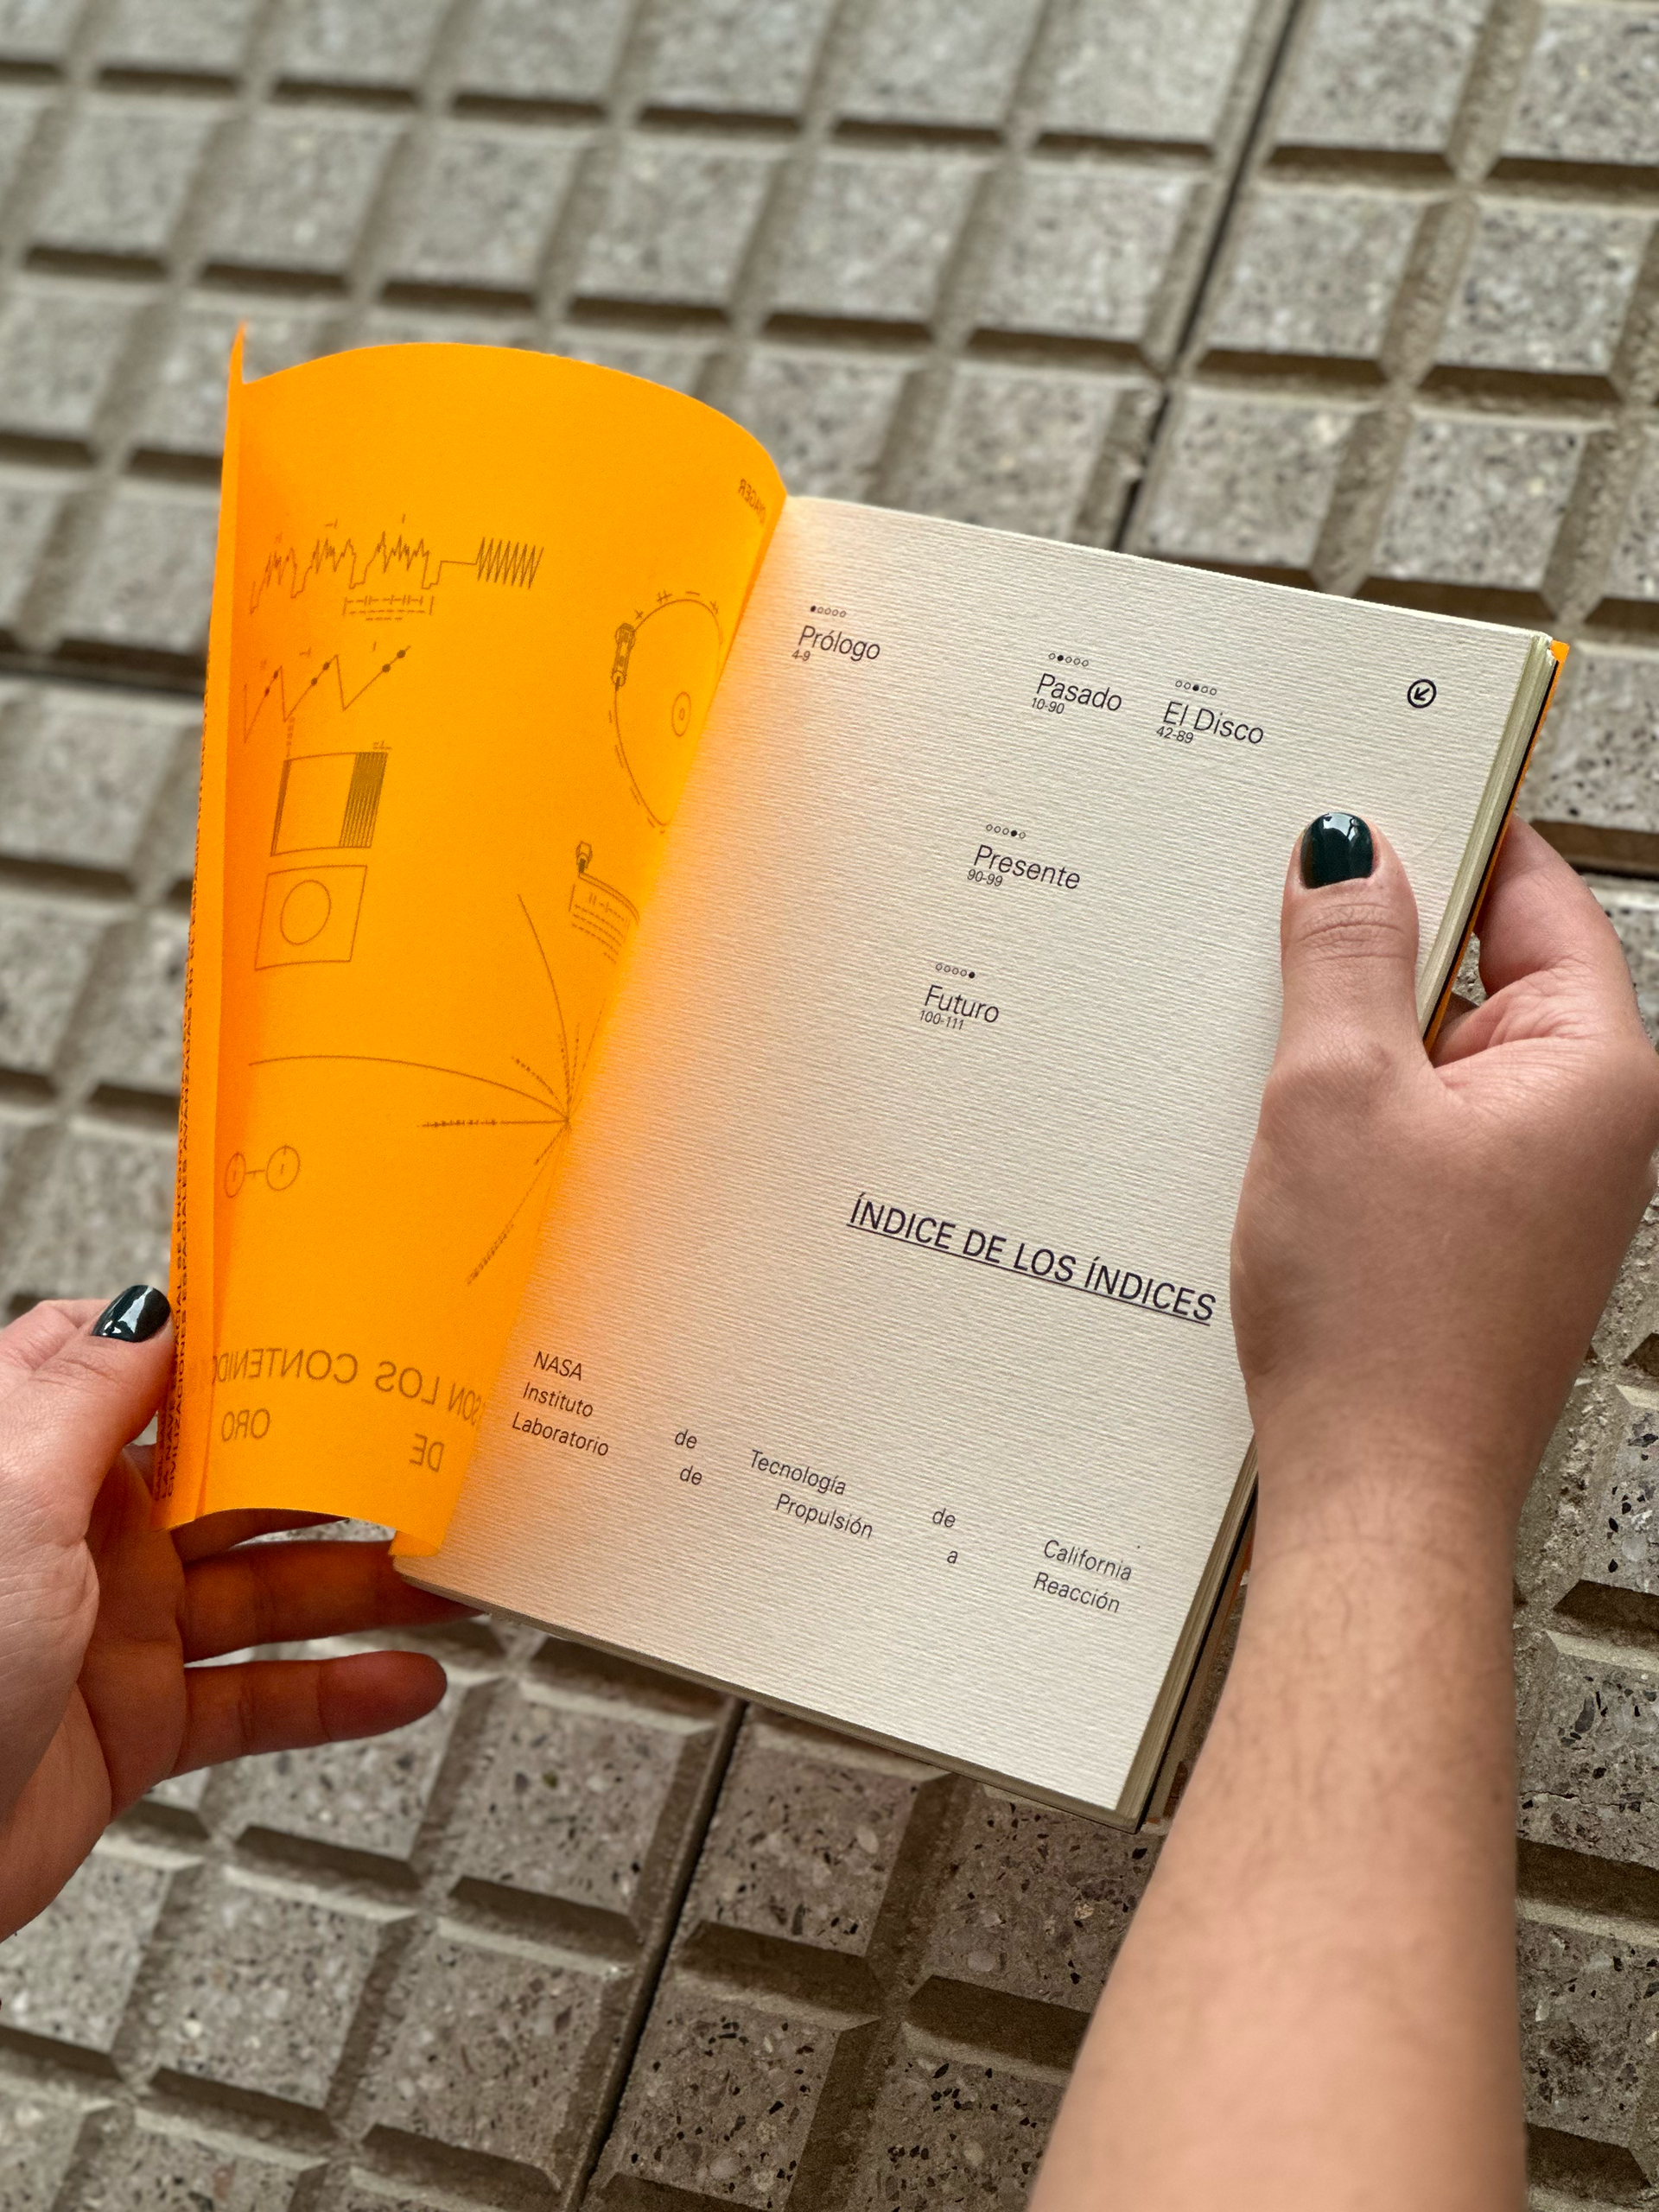 Prólogo
4-9
Pasado
10-90
El Disco
42-89
Presente
90-99
Futuro
100-111
ÍNDICE DE LOS ÍNDICES
NASA
Instituto de Tecnología de California
Laboratorio de Propulsión a Reacción
SON LOS
DE ORO
CIVILIZACIONES ESPACIALES AVANZADAS EN EL